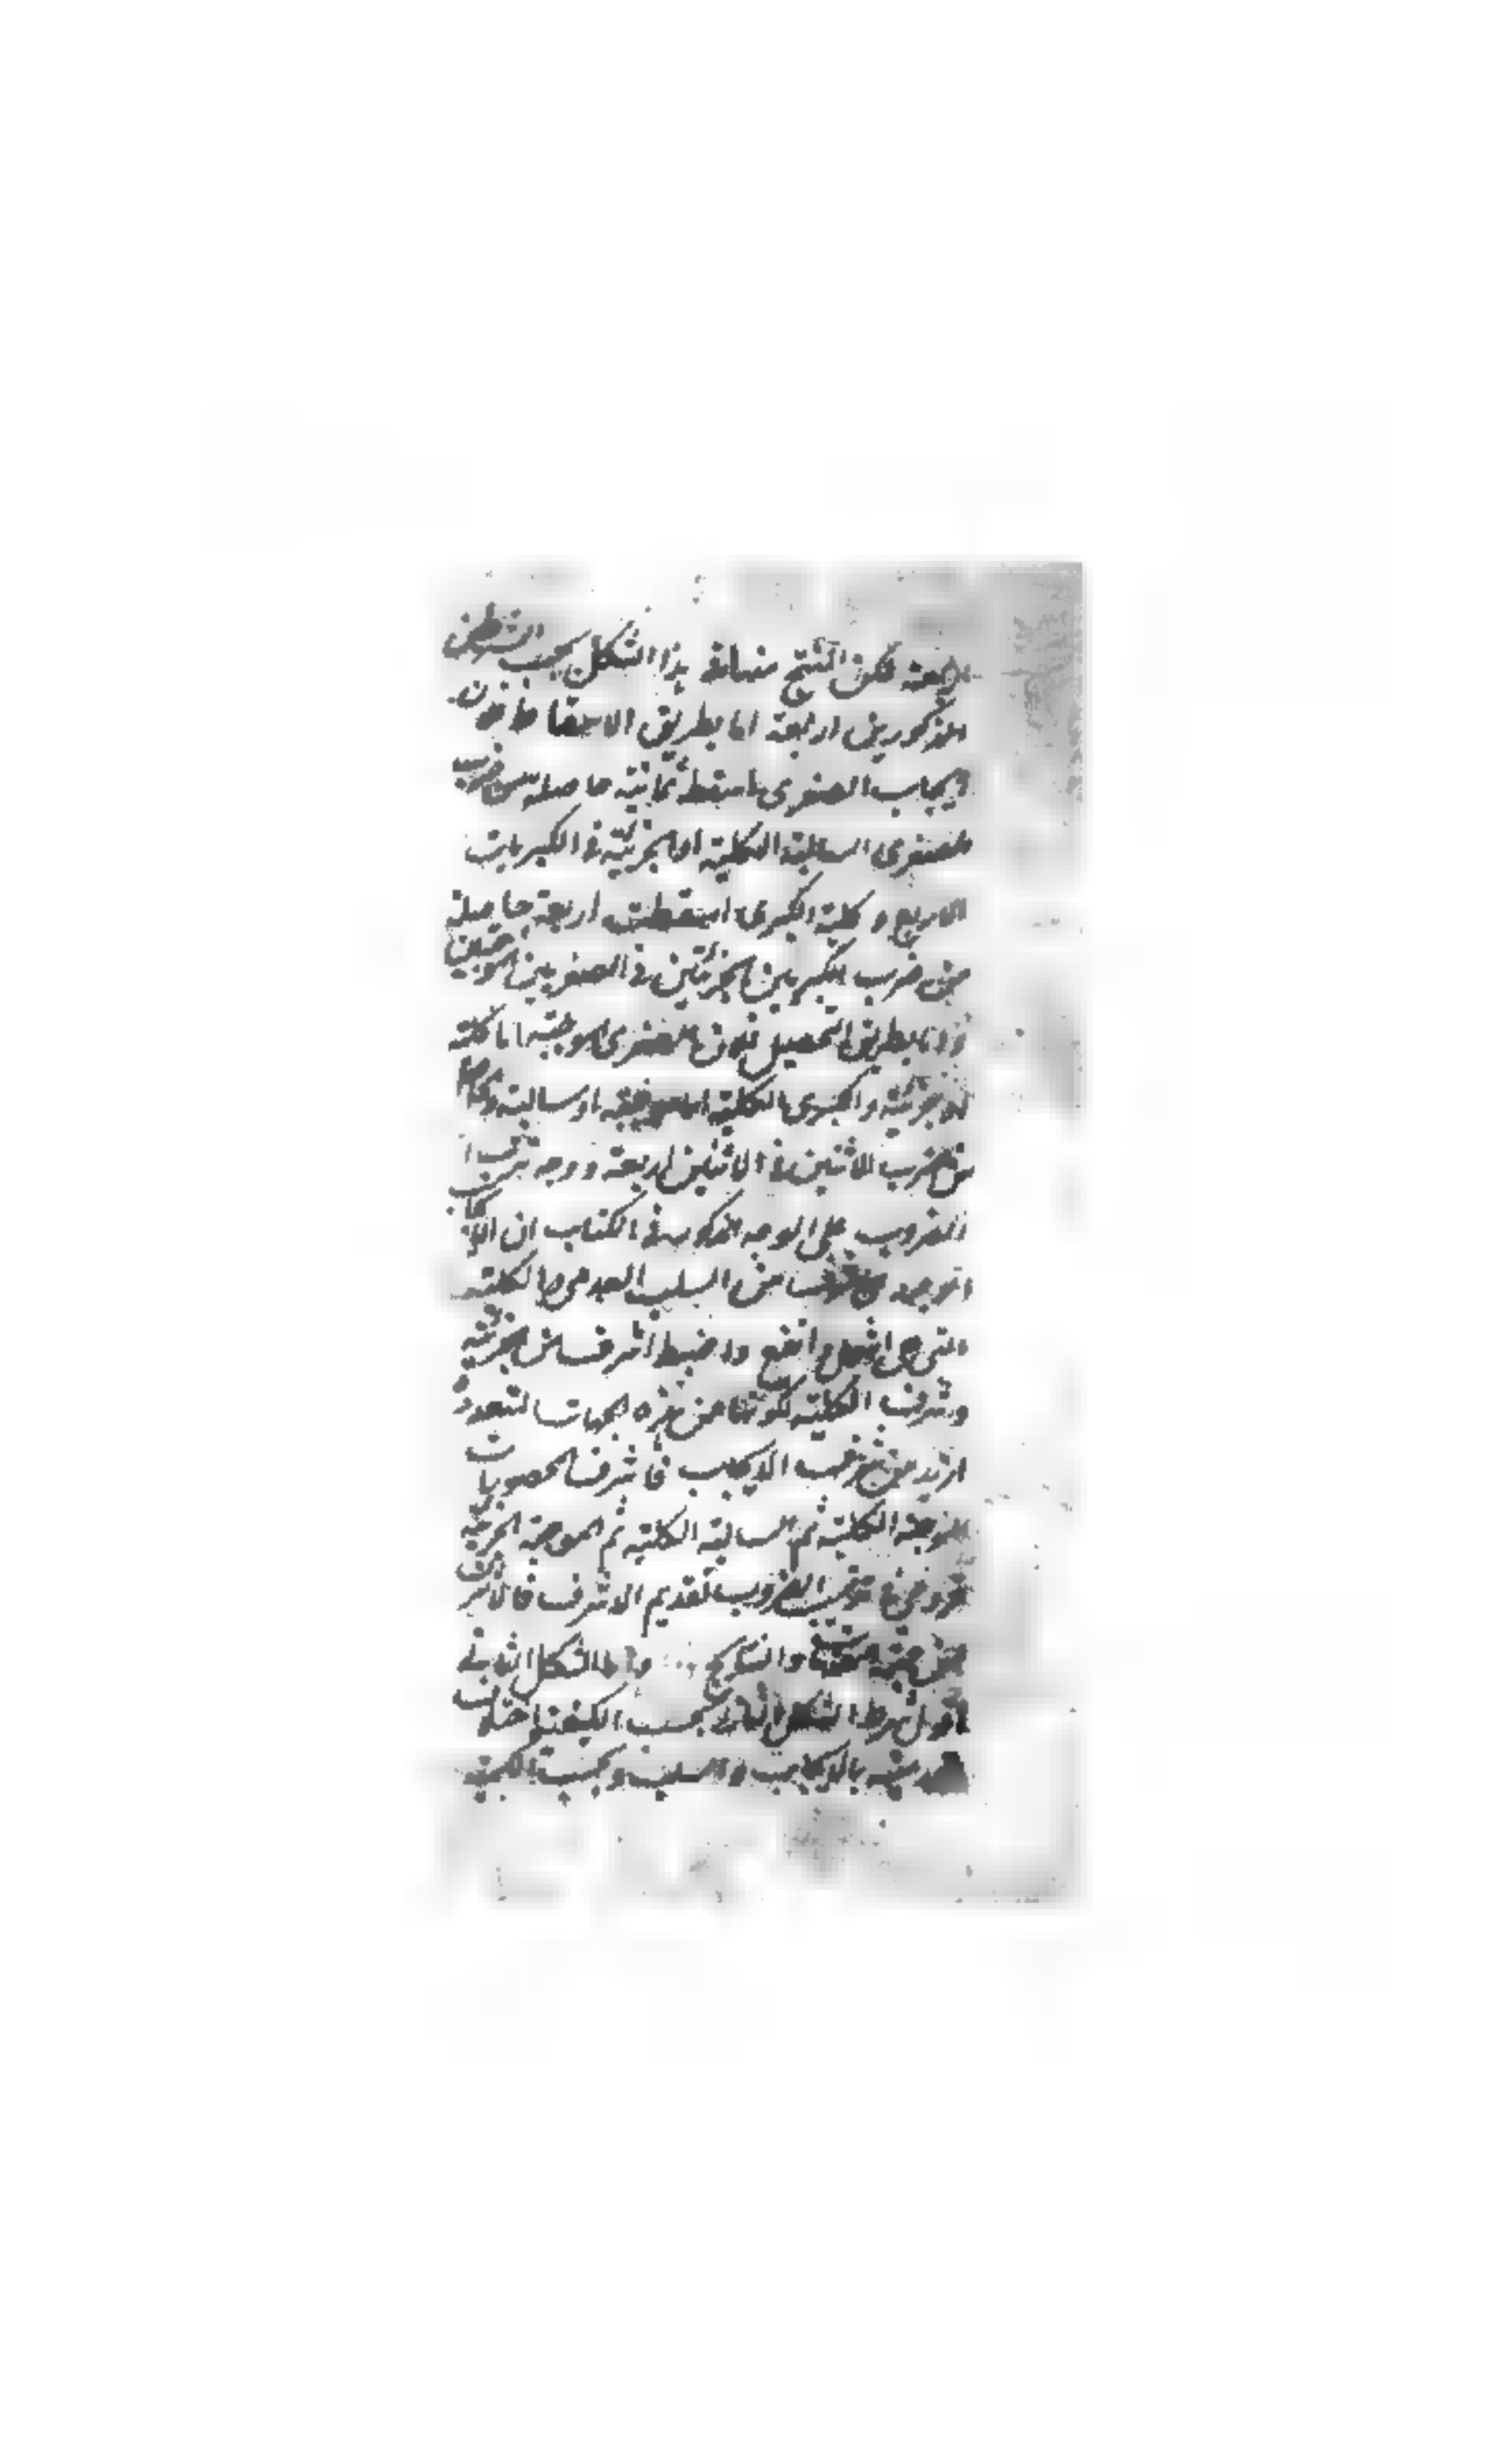 لكن المنتج منها في هذا الشكل بحسب الشرطين
المذكورين اربعة اما بطريق الاسقاط فلان
ايجاب الصغرى اسقط ثمانية حاصلة من ضرب
الصغرى السالبة الكلية او الجزئية في الكبريات
الاربع و كلية الكبرى اسقطت اربعة حاصلة
من ضرب الكبريين الجزئيتين في الصغريين الموجبتين
و اما بطريق التحصيل فلان الصغرى الموجبة اما كلية
او جزئية والكبرى الكلية اما موجبة او سالبة والحاصل
من ضرب الاثنين في الاثنين اربعة و وجه ترتيب
الضروب على الوجه المذكور في الكتاب ان الايجاب
من السلب العدمي والكلية
التي هي اشمل و انفع و اضبط اشرف من الجزئية
وشرف الكلية لكونها من هذه الجهات المتعددة
ازيد من شرف الايجاب فاشرف المحصورات
الموجبة الكلية ثم السالبة الكلية ثم الموجبة الجزئية
في ترتيب الضروب تقديم الاشرف فالاشرف
والنتائج واما الشكل الثاني
اقول شرط الشكل الثاني بحسب الكيفية اختلاف
مقدمتيه بالايجاب والسلب وبحسب الكمية